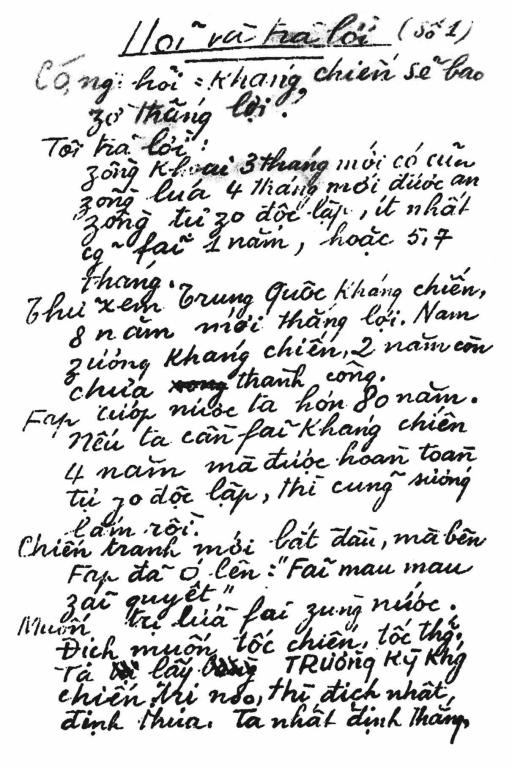 Hỏi và trả lời (Số 1)
Có ng. hỏi: Kháng chiến sẽ bao
zờ thắng lợi?
Tôi trả lời:
zồng khoai 3 tháng mới có củ
zồng lúa 4 tháng mới được ăn
zồng tự zo độc lập, ít nhất
cg~ fải 1 năm, hoặc 5, 7
tháng.
Thử xem Trung Quốc kháng chiến,
8 năm mới thắng lợi. Nam
zương kháng chiến, 2 năm còn
chưa thành công.
Fáp cướp nước ta hơn 80 năm.
Nếu ta cần fải kháng chiến
4 năm mà được hoàn toàn
tự zo độc lập, thì cũng sướng
lắm rồi.
Chiến tranh mới bắt đầu, mà bên
Fáp đã ó lên: "Fải mau mau
zải quyết"
Muốn trị lửa fải zùng nước.
Địch muốn tốc chiến, tốc thg.
Ta lấy TRường Kỳ Khg
chiến trị nó, thì địch nhất
định thua. Ta nhất định thắng.